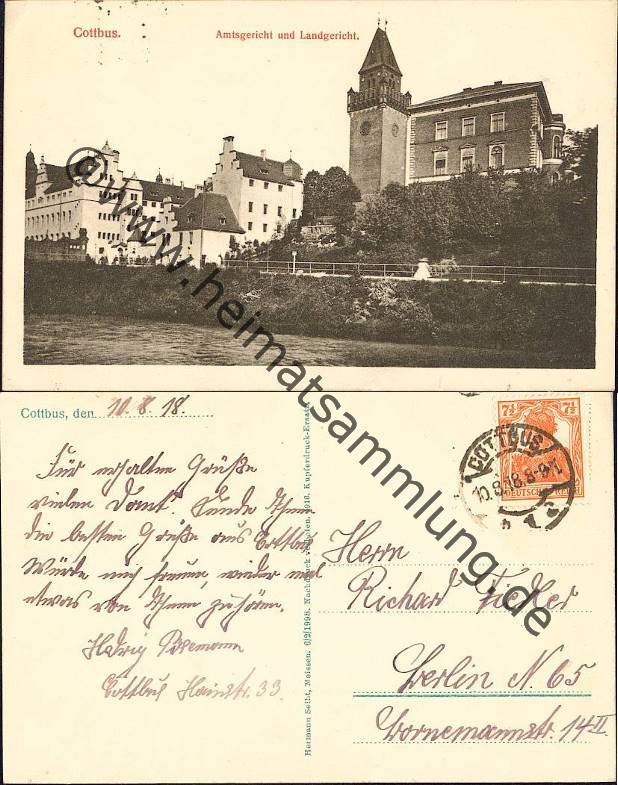 Cottbus.
Amtsgericht und Landgericht.
©www.heimatsammlung.de
Cottbus, den 10.8.18.
Für erhaltene Grüße
vielen Dank. Sende Ihnen
die besten Grüße aus Cottbus
Würde mich freuen, wieder mal
etwas von Ihnen zu hören.
Hedwig
Cottbus Hainstr. 33.
Hermann Seibt, Meissen. 6/2|1998. Nachdruck verboten. 1916. Kupferdruck-Ersatz.
7½ 7½
DEUTSCHES REICH
COTTBUS
10.8.18.8-9V.
Herrn
Richard Fiedler
Berlin N 65
Bornemannstr. 14 II